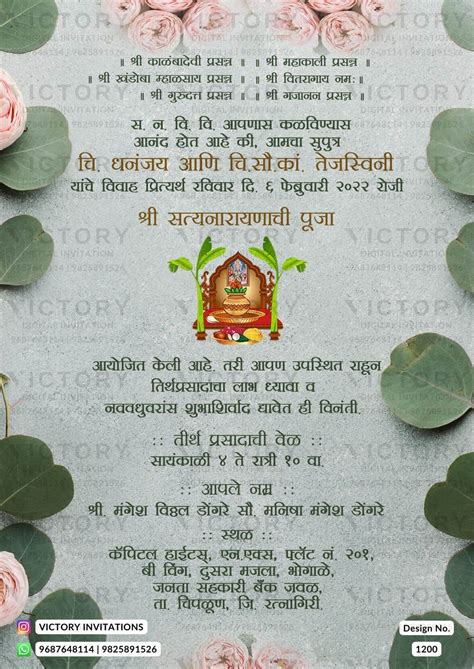 ॥ श्री काळंबादेवी प्रसन्न ॥ ॥ श्री महाकाली प्रसन्न ॥
॥ श्री खंडोबा म्हाळसाय प्रसन्न ॥ ॥ श्री वितरागाय नमः॥
॥ श्री गुरुदत्त प्रसन्न ॥ ॥ श्री गजानन प्रसन्न ॥
स. न. वि. वि. आपणास कळविण्यास
आनंद होत आहे की, आमचा सुपुत्र
चि. धनंजय आणि चि.सौ.कां. तेजस्विनी
यांचे विवाह प्रित्यर्थ रविवार दि. ६ फेब्रुवारी २०२२ रोजी
श्री सत्यनारायणाची पूजा
आयोजित केली आहे. तरी आपण उपस्थित राहून
तिर्थप्रसादाचा लाभ घ्यावा व
नववधुवरांस शुभाशिर्वाद द्यावेत ही विनंती.
:: तीर्थ प्रसादाची वेळ ::
सायंकाळी ४ ते रात्री १० वा.
:: आपले नम्र ::
श्री. मंगेश विठ्ठल डोंगरे सौ. मनिषा मंगेश डोंगरे
:: स्थळ ::
कॅपिटल हाईटस्, एन.एक्स, फ्लॅट नं. २०१,
बी विंग, दुसरा मजला, भोगाळे,
जनता सहकारी बँक जवळ,
ता. चिपळूण, जि. रत्नागिरी.
VICTORY INVITATIONS
9687648114 | 9825891526
Design No.
1200
VICTORY
DIGITAL INVITATION